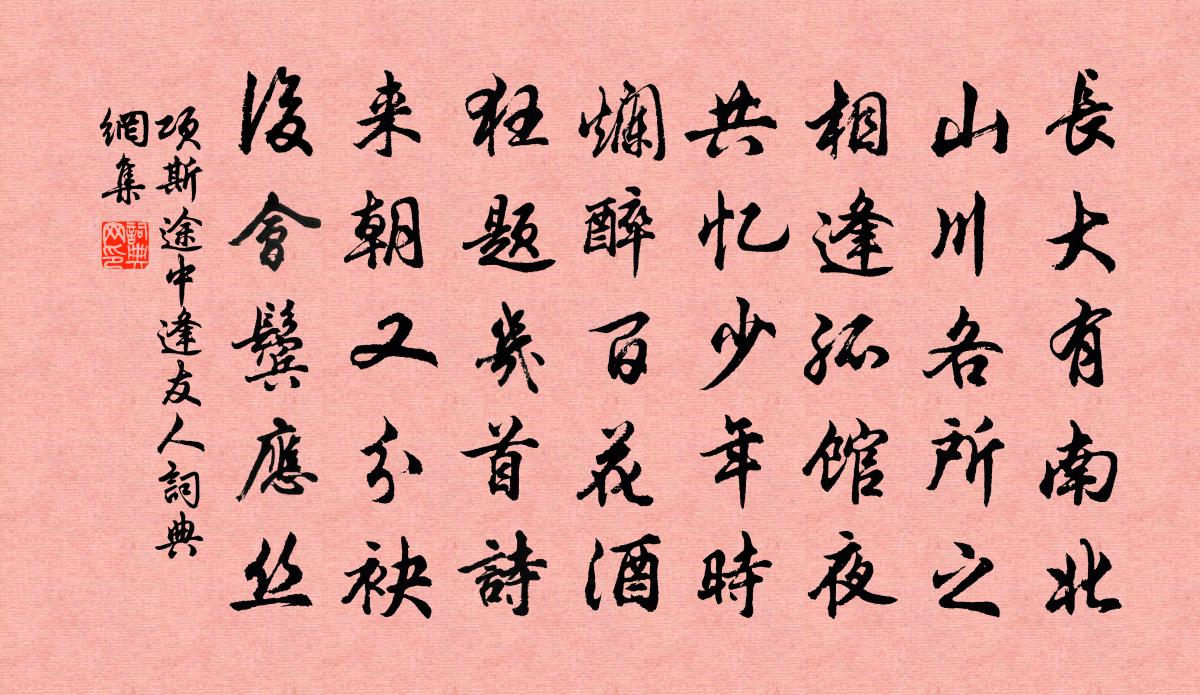 長大有南北
山川各所之
相逢孤館夜
共忆少年時
爛醉百花酒
狂题幾首詩
来朝又分袂
後會鬓應丝
項斯途中逢友人詞典
網集
詞典
网印